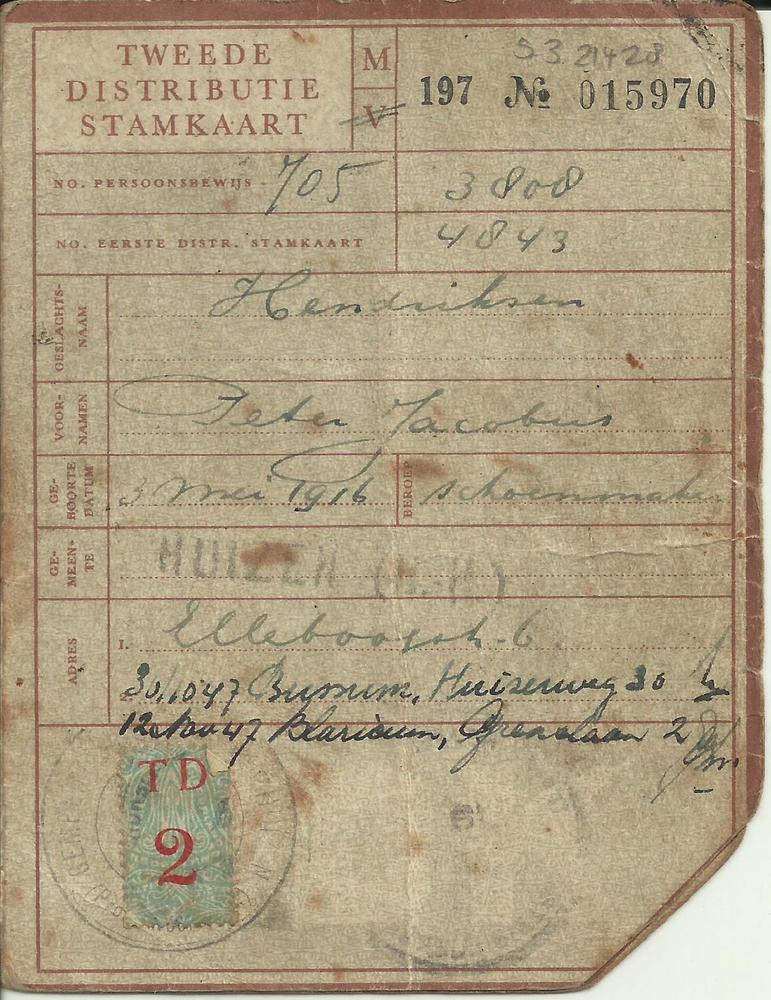 TWEEDE
DISTRIBUTIE
STAMKAART
M
V
53 21428
197 № 015970
NO. PERSOONSBEWIJS - 705 3808
NO. EERSTE DISTR. STAMKAART 4843
GESLACHTS-
NAAM
Hendriksen
VOOR-
NAMEN
Peter Jacobus
GE-
BOORTE
DATUM
3 Mei 1916
BEROEP
schoenmaker
GE-
MEEN-
TE
HUIZEN (N.H.)
ADRES
1. Elleboogstr. 6
30/10 47 Bussum, Huizerweg 30
12 Nov 47 Blaricum, Grenslaan 2
TD
2